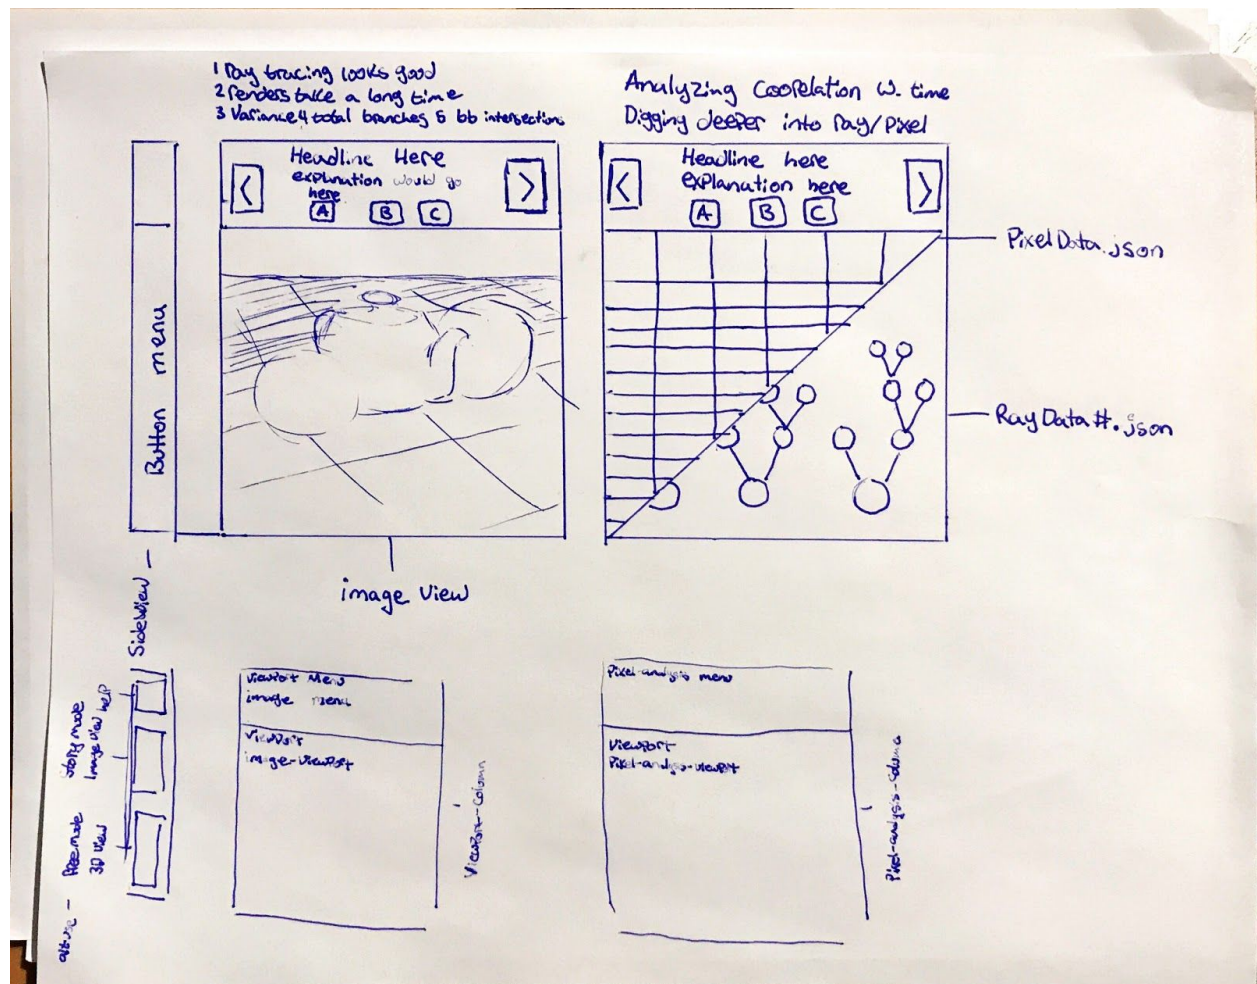 1 Ray tracing looks good
2 renders take a long time
3 Variance 4 total branches 5 bb intersections
Analyzing Coorelation w. time
Digging deeper into Ray/Pixel
Headline Here
explanation would go
here
<
>
A B C
Headline here
explanation here
<
>
A B C
Button menu
PixelData.json
RayData#.json
image View
SideView
Story mode
image view help
Free mode
3D View
Viewport Menu
image menu
Viewport
image-viewport
Viewport-Column
Pixel-analysis menu
Viewport
Pixel-analysis-viewport
Pixel-analysis-column